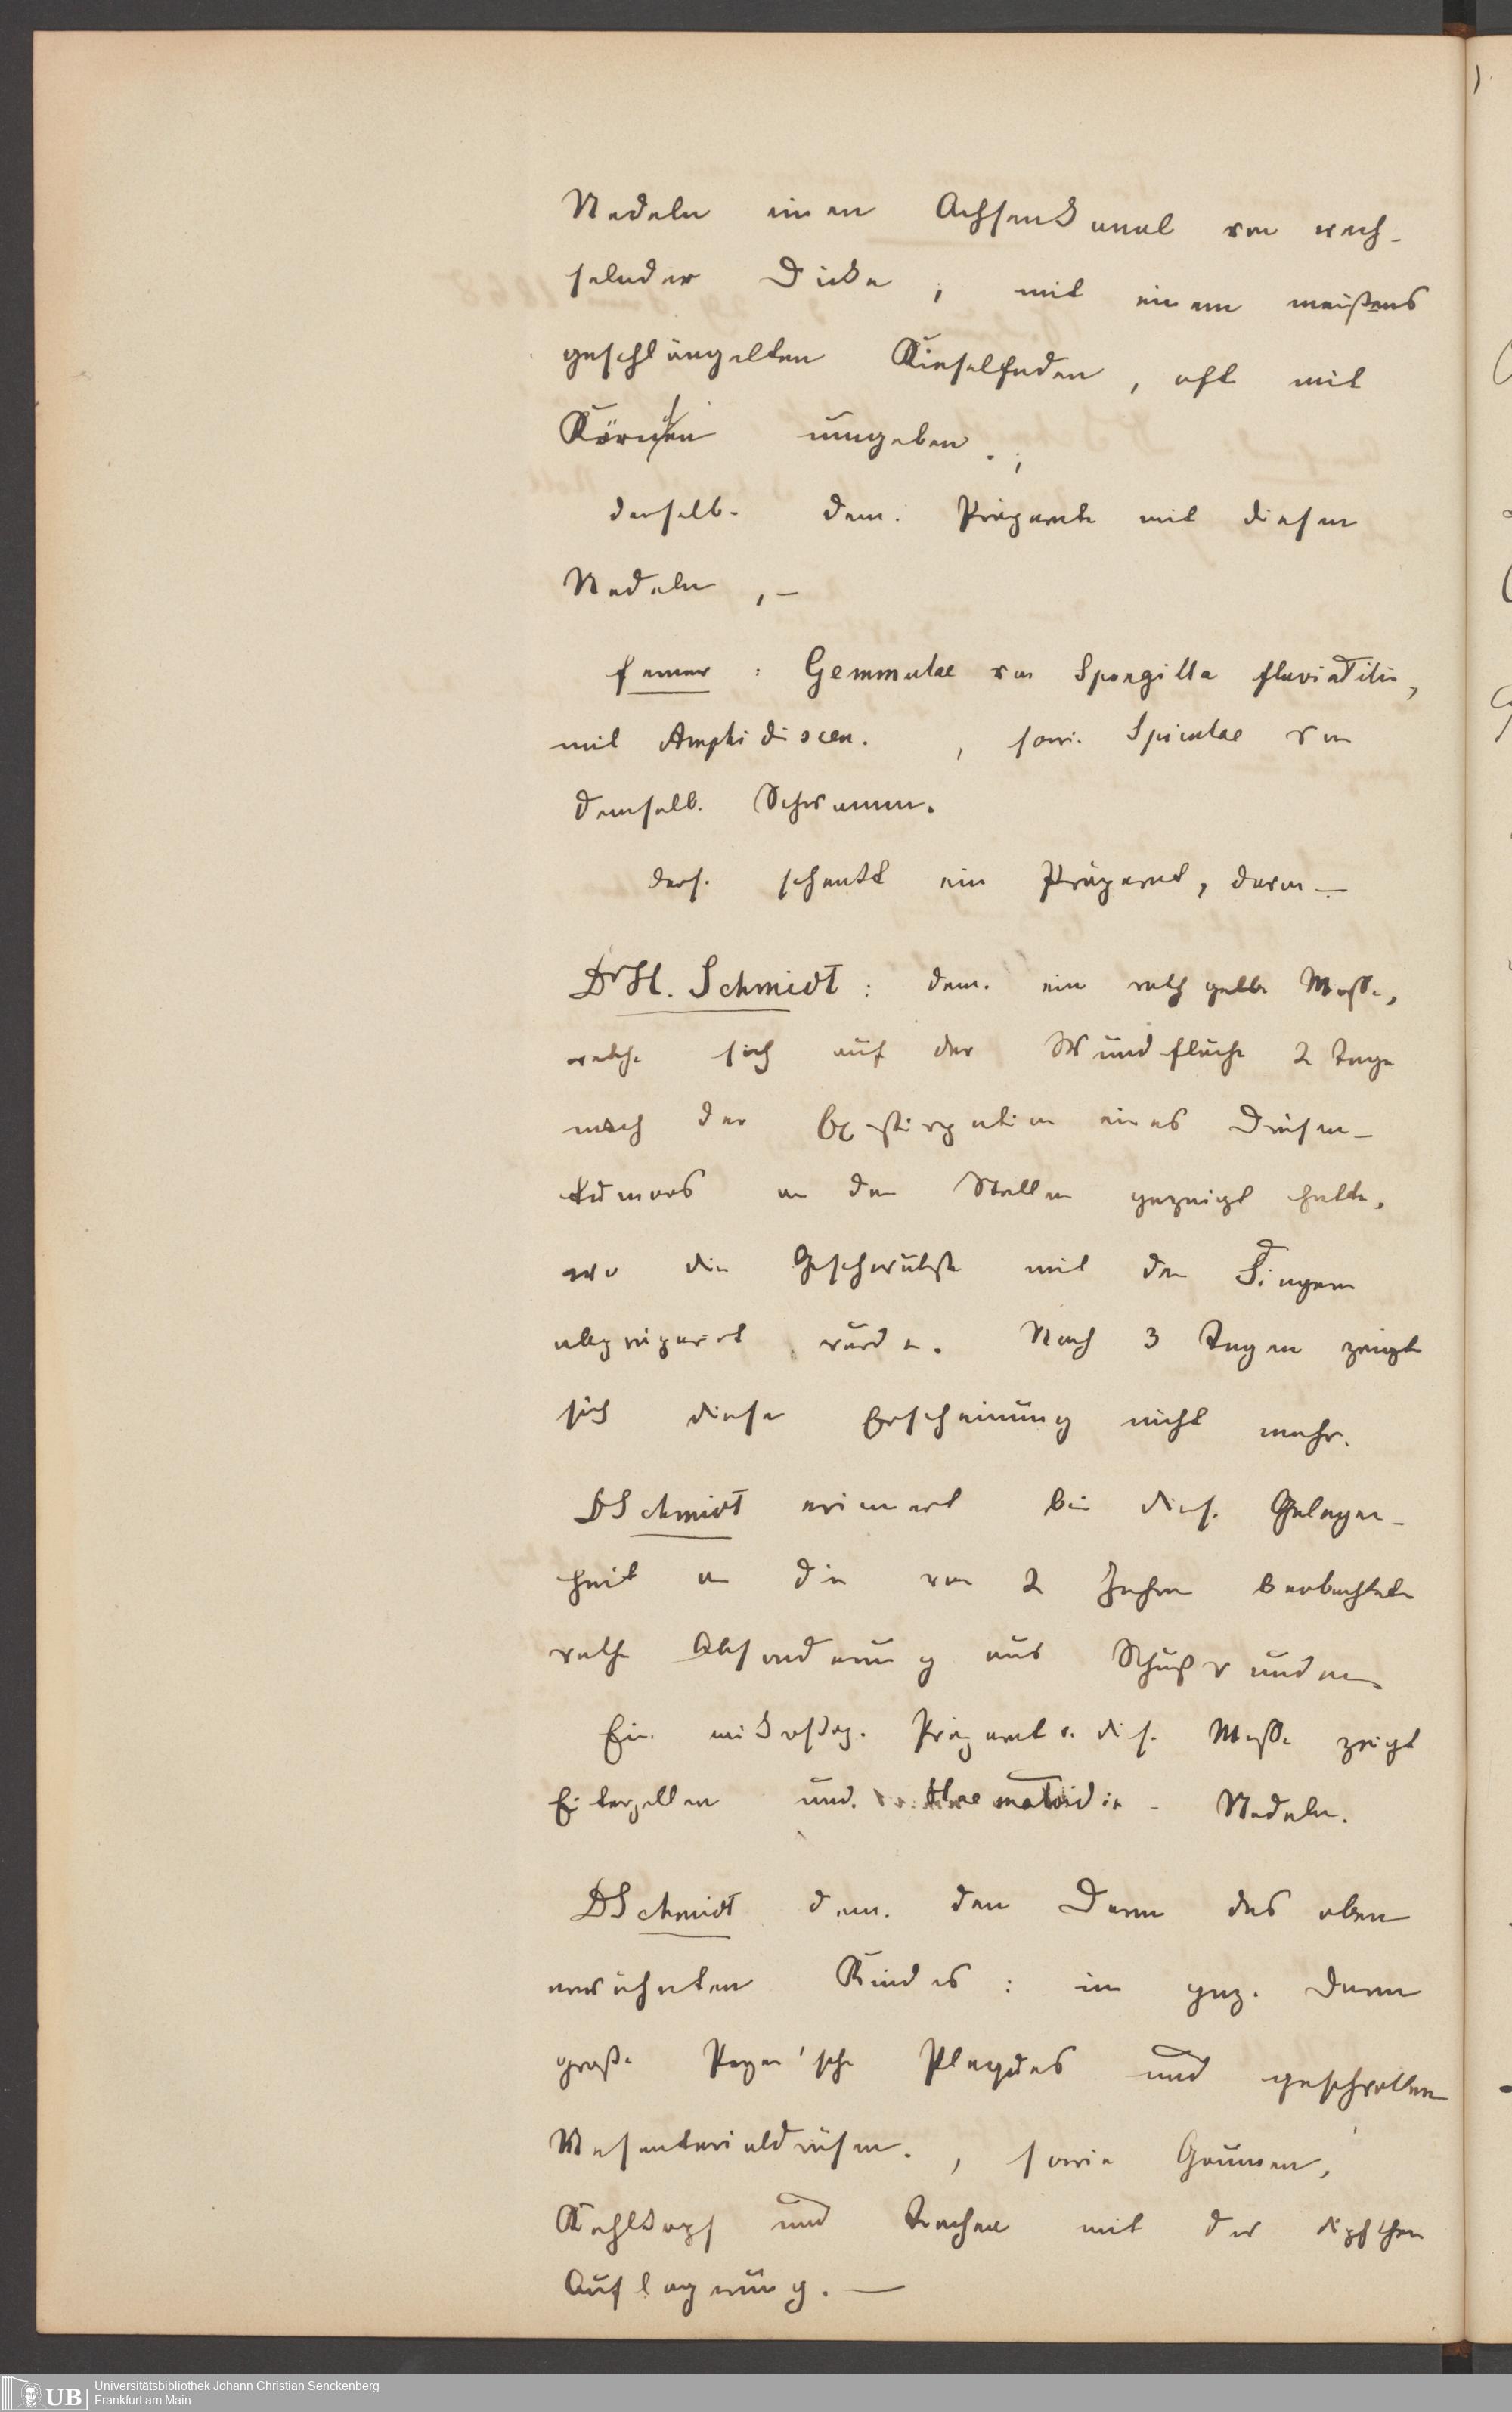 Nadeln einen Achsenkanal von wech-
selnder Dicke, mit einem meistens
geschlängelten Kieselfaden, oft mit
Körnchen umgeben.;
derselb. dem. Präparate mit diesen
Nadeln,-
ferner : Gemmulae von Spongilla fluviatilis,
mit Amphidiscen. , sowi. Spiculae von
demselb. Schwamm.
ders. schenkt ein Präparat, davon —
Dr H. Schmidt : dem. ein rothgelbe Masse,
welche sich auf der Wundfläche 2 Tage
nach der Exstirpation eines Drüsen-
tumors an den Stellen gezeigt hatte,
wo die Geschwulst mit den Fingern
abpräparirt wurde. Nach 3 Tagen zeigte
sich diese Erscheinung nicht mehr.
DSchmidt erinnert bei dies. Gelegen-
heit an die vor 2 Jahren beobachtete
rothe Absonderung aus Schußwunden.
Ein mikroskop. Präparat v. dis. Masse zeigt
Eiterzellen und Haematoidin- Nadeln.
DSchmidt dem. den Darm des oben
erwähnten Kindes : im gnz. Darm
große Peyer'sche Plaques und geschwollene
Mesenterialdrüsen. , sowie Gaumen,
Kehlkopf und Trachea mit der diphther
Auflagerung. —
Universitätsbibliothek Johann Christian Senckenberg
UB Frankfurt am Main